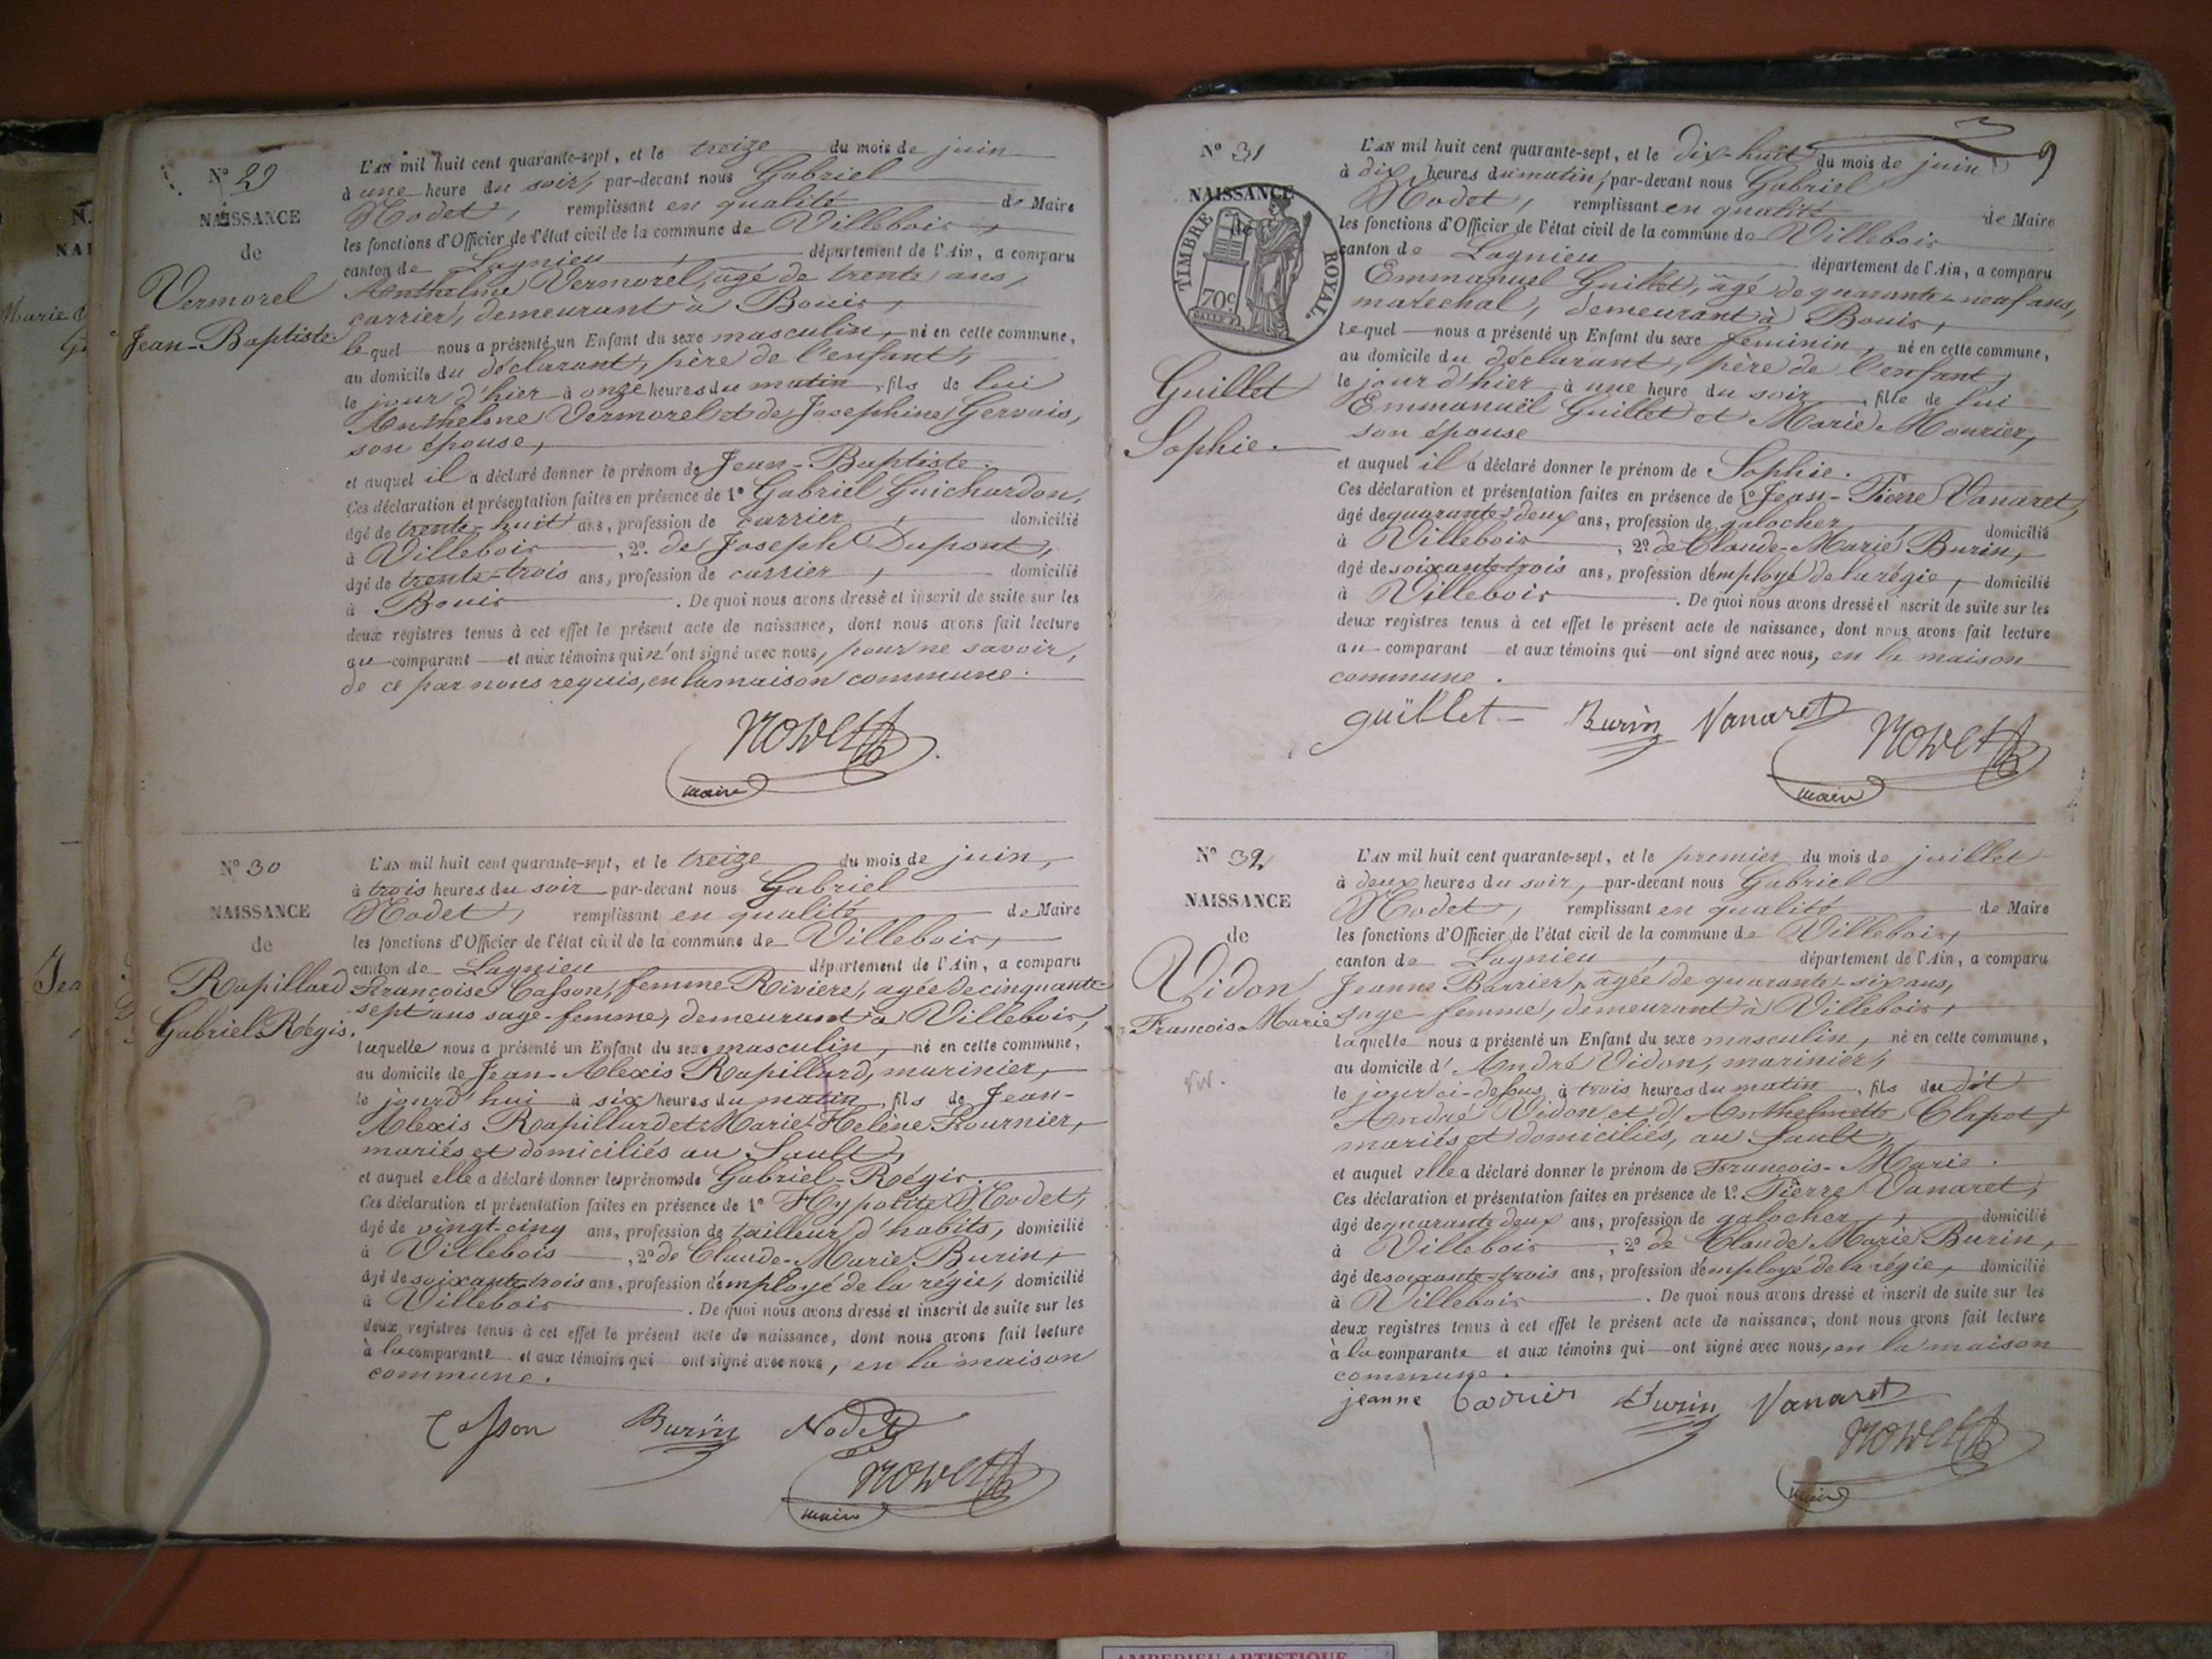 Nº 29
NAISSANCE
de
Vermorel
Jean-Baptiste.
L'AN mil huit cent quarante-sept, et le treize du mois de juin
à une heure du soir, par-devant nous Gabriel
Nodet, remplissant en qualité de Maire
les fonctions d'Officier de l'état civil de la commune de Villebois,
canton de Lagnieu, département de l'Ain, a comparu
Anthelme Vermorel, âgé de trente ans,
carrier, demeurant à Bouis,
lequel nous a présenté un Enfant du sexe masculin, né en cette commune,
au domicile du déclarant, père de l'enfant,
le jour d'hier à onze heures du matin, fils de lui
Anthelme Vermorel et de Josephine Gervais,
son épouse,
et auquel il a déclaré donner le prénom de Jean-Baptiste.
Ces déclaration et présentation faites en présence de 1º Gabriel Guichardon,
âgé de trente-huit ans, profession de carrier, domicilié
à Villebois, 2º. de Joseph Dupont,
âgé de trente-trois ans, profession de carrier, domicilié
à Bouis. De quoi nous avons dressé et inscrit de suite sur les
deux registres tenus à cet effet le présent acte de naissance, dont nous avons fait lecture
au comparant et aux témoins qui n'ont signé avec nous, pour ne savoir,
de ce par nous requis, en la maison commune.
Nodet
maire
Nº 30
NAISSANCE
de
Rapillard
Gabriel-Régis.
L'AN mil huit cent quarante-sept, et le treize du mois de juin,
à trois heures du soir par-devant nous Gabriel
Nodet, remplissant en qualité de Maire
les fonctions d'Officier de l'état civil de la commune de Villebois,
canton de Lagnieu département de l'Ain, a comparu
Françoise Casson, femme Rivière, agée de cinquante-
sept ans sage-femme, demeurant à Villebois,
laquelle nous a présenté un Enfant du sexe masculin, né en cette commune,
au domicile de Jean-Alexis Rapillard, marinier,
le jourd'hui à six heures du matin, fils de Jean-
Alexis Rapillard et Marie-Helène Fournier,
mariés et domiciliés au Sault,
et auquel elle a déclaré donner les prénoms de Gabriel-Régis.
Ces déclaration et présentation faites en présence de 1º Hypolite Nodet,
âgé de vingt-cinq ans, profession de tailleur d'habits, domicilié
à Villebois, 2º de Claude-Marie Burin,
âgé de soixante-trois ans, profession d'employé de la régie, domicilié
à Villebois. De quoi nous avons dressé et inscrit de suite sur les
deux registres tenus à cet effet le présent acte de naissance, dont nous avons fait lecture
à la comparante et aux témoins qui ont signé avec nous, en la maison
commune.
Casson Burin Nodet
Nodet
maire
9
Nº 31
NAISSANCE
de
TIMBRE ROYAL
70c
Guillet
Sophie.
L'AN mil huit cent quarante-sept, et le dix-huit du mois de juin
à dix heures du matin, par-devant nous Gabriel
Nodet, remplissant en qualité de Maire
les fonctions d'Officier de l'état civil de la commune de Villebois
canton de Lagnieu département de l'Ain, a comparu
Emmanuel Guillet, âgé de quarante-neuf ans,
marechal, demeurant à Bouis,
lequel nous a présenté un Enfant du sexe féminin, né en cette commune,
au domicile du déclarant, père de l'enfant,
le jour d'hier à une heure du soir, fille de lui
Emmanuël Guillet et Marie Mourier,
son épouse
et auquel il a déclaré donner le prénom de Sophie.
Ces déclaration et présentation faites en présence de 1º Jean-Pierre Vanaret,
âgé de quarante-deux ans, profession de galocher, domicilié
à Villebois, 2º. de Claude-Marie Burin,
âgé de soixante-trois ans, profession d'employé de la régie, domicilié
à Villebois. De quoi nous avons dressé et inscrit de suite sur les
deux registres tenus à cet effet le présent acte de naissance, dont nous avons fait lecture
au comparant et aux témoins qui ont signé avec nous, en la maison
commune.
guillet Burin Vanaret
Nodet
maire
Nº 32
NAISSANCE
de
Vidon
François Marie
L'AN mil huit cent quarante-sept, et le premier du mois de juillet
à deux heures du soir, par-devant nous Gabriel
Nodet, remplissant en qualité de Maire
les fonctions d'Officier de l'état civil de la commune de Villebois,
canton de Lagnieu, département de l'Ain, a comparu
Jeanne Barrier, âgée de quarante-six ans,
sage-femme, demeurant à Villebois,
laquelle nous a présenté un Enfant du sexe masculin, né en cette commune,
au domicile d'André Vidon, marinier,
le jour ci-dessus à trois heures du matin, fils du dit
André Vidon et d'Anthelmette Clapot,
mariés et domiciliés, au Sault,
et auquel elle a déclaré donner le prénom de François-Marie.
Ces déclaration et présentation faites en présence de 1º. Pierre Vanaret,
âgé de quarante deux ans, profession de galocher, domicilié
à Villebois, 2º de Claude Marie Burin,
âgé de soixante-trois ans, profession d'employé de la régie, domicilié
à Villebois. De quoi nous avons dressé et inscrit de suite sur les
deux registres tenus à cet effet le présent acte de naissance, dont nous avons fait lecture
à la comparante et aux témoins qui ont signé avec nous, en la maison
commune.
jeanne barrier Burin Vanaret
Nodet
maire
AMBERIEU ARTISTIQUE